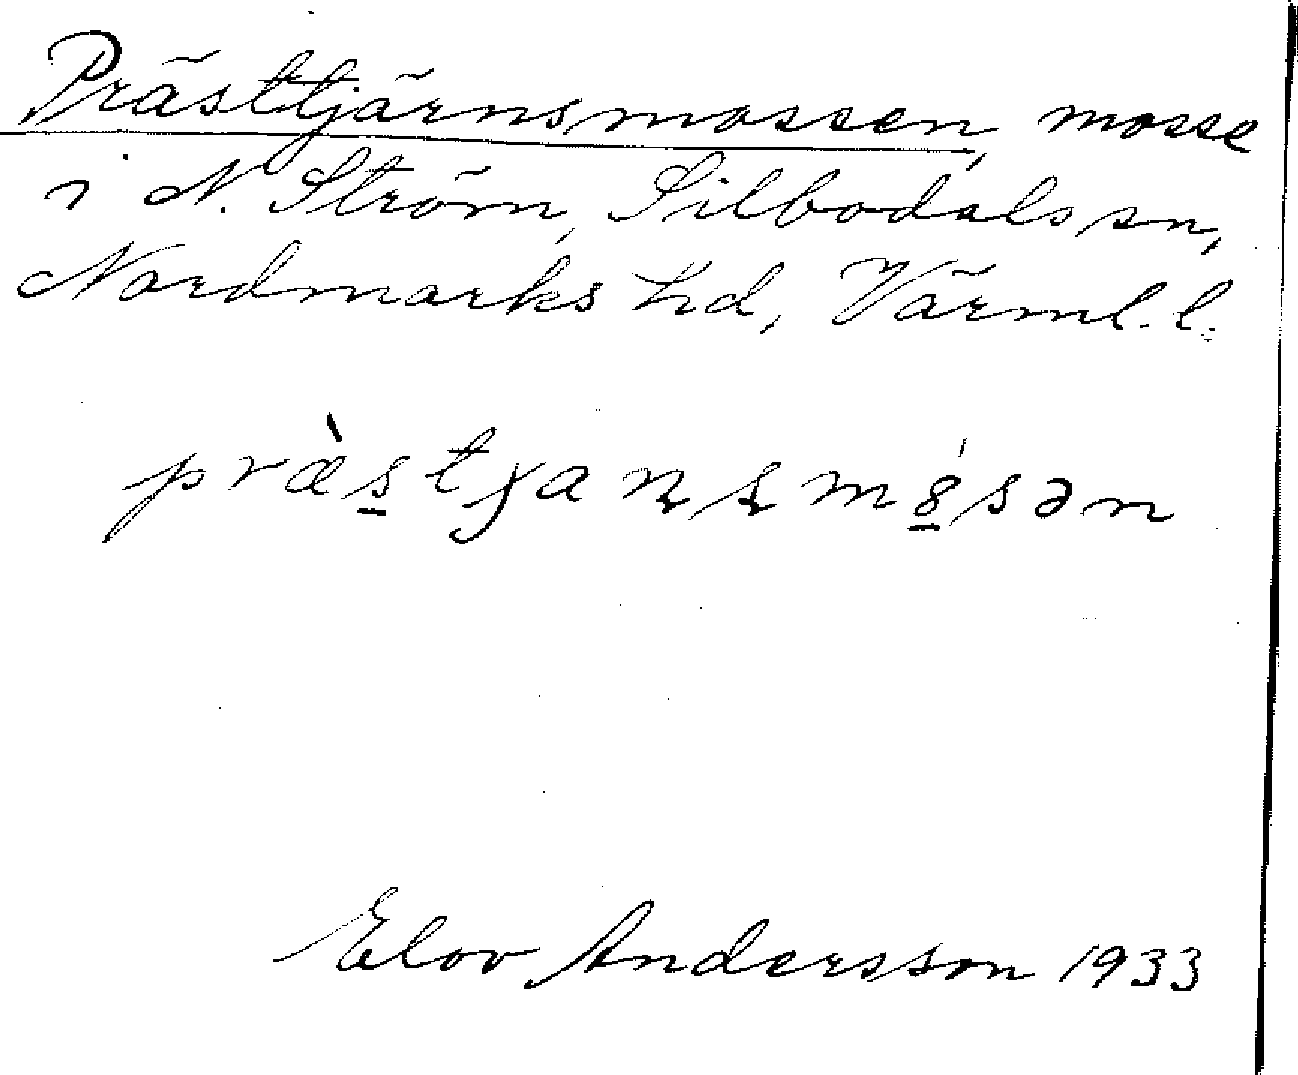 Prästtjärnsmossen, mosse
i N. Ström, Silbodals sn,
Nordmarks hd, Värml. l.
præ̀s̲tjanʂm8̲́sən
Elov Andersson 1933